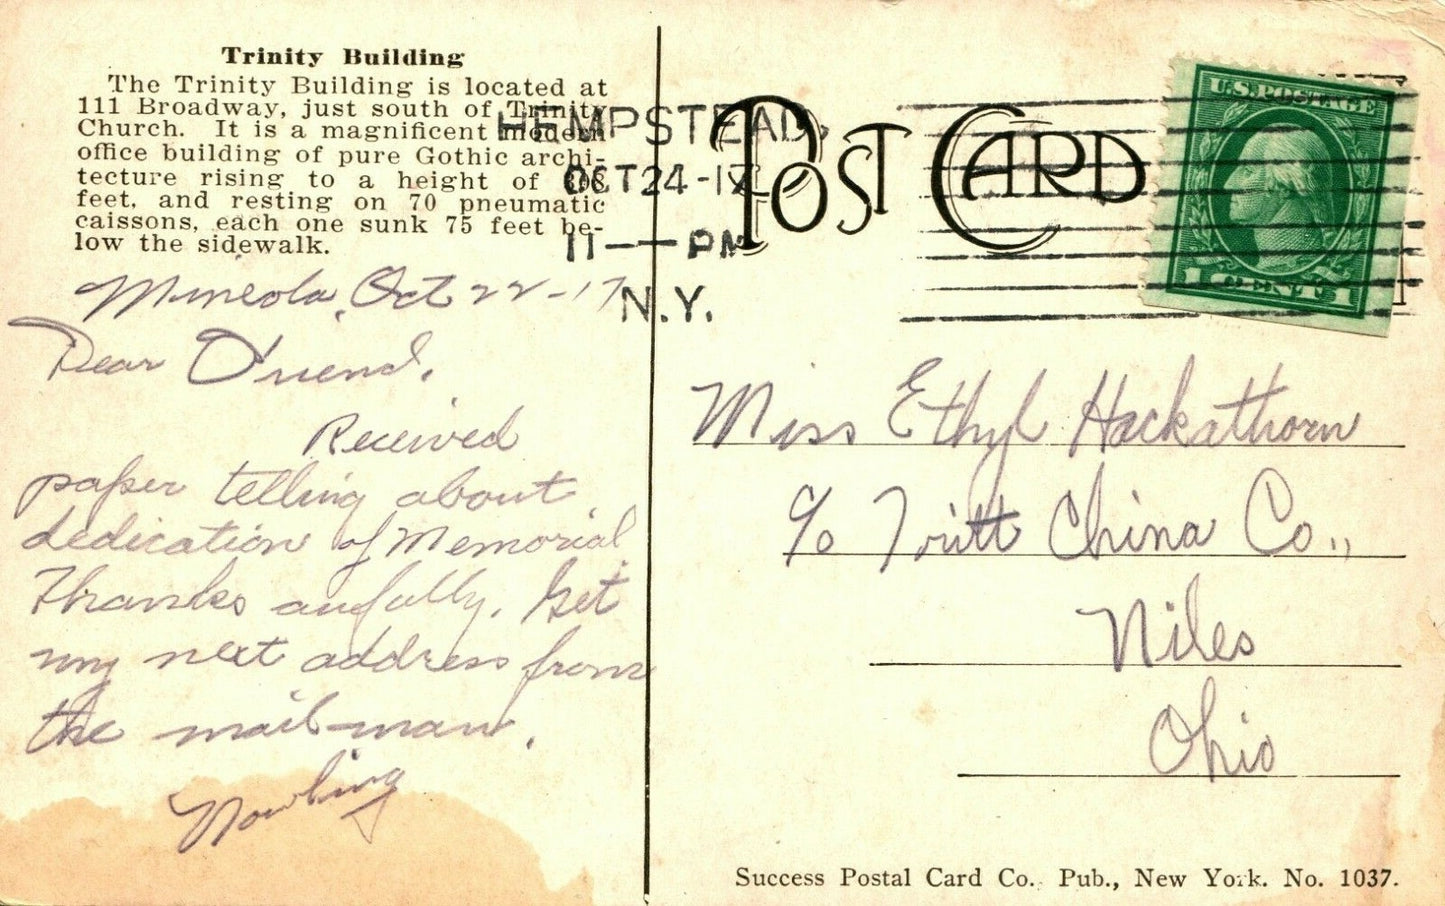 Trinity Building
The Trinity Building is located at
111 Broadway, just south of Trinity
Church. It is a magnificent modern
office building of pure Gothic archi-
tecture rising to a height of 308
feet, and resting on 70 pneumatic
caissons, each one sunk 75 feet be-
low the sidewalk.
HEMPSTEAD,
OCT 24-17
11 — PM
N.Y.
POST CARD
U.S. POSTAGE
1 CENT 1
Mineola, Oct 22-17
Dear Friend,
Received
paper telling about
dedication of Memorial
Thanks awfully. Get
my next address from
the mail-man.
Nowling
Miss Ethyl Hackathorn
c/o Tritt China Co.,
Niles
Ohio
Success Postal Card Co. Pub., New York. No. 1037.